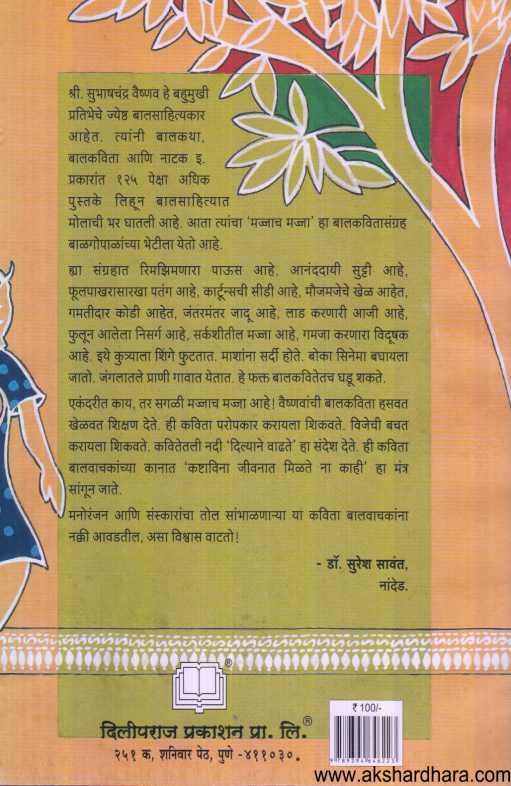 श्री. सुभाषचंद्र वैष्णव हे बहुमुखी
प्रतिभेचे ज्येष्ठ बालसाहित्यकार
आहेत. त्यांनी बालकथा,
बालकविता आणि नाटक इ.
प्रकारांत १२५ पेक्षा अधिक
पुस्तके लिहून बालसाहित्यात
मोलाची भर घातली आहे. आता त्यांचा 'मज्जाच मज्जा' हा बालकवितासंग्रह
बाळगोपाळांच्या भेटीला येतो आहे.
ह्या संग्रहात रिमझिमणारा पाऊस आहे, आनंददायी सुट्टी आहे,
फूलपाखरासारखा पतंग आहे, कार्टून्सची सीडी आहे, मौजमजेचे खेळ आहेत,
गमतीदार कोडी आहेत, जंतरमंतर जादू आहे, लाड करणारी आजी आहे,
फुलून आलेला निसर्ग आहे, सर्कशीतील मज्जा आहे, गमजा करणारा विदूषक
आहे. इथे कुत्र्याला शिंगे फुटतात. माशांना सर्दी होते. बोका सिनेमा बघायला
जातो. जंगलातले प्राणी गावात येतात. हे फक्त बालकवितेतच घडू शकते.
एकंदरीत काय, तर सगळी मज्जाच मज्जा आहे! वैष्णवांची बालकविता हसवत
खेळवत शिक्षण देते. ही कविता परोपकार करायला शिकवते. विजेची बचत
करायला शिकवते. कवितेतली नदी 'दिल्याने वाढते' हा संदेश देते. ही कविता
बालवाचकांच्या कानात 'कष्टाविना जीवनात मिळते ना काही' हा मंत्र
सांगून जाते.
मनोरंजन आणि संस्कारांचा तोल सांभाळणाऱ्या या कविता बालवाचकांना
नक्की आवडतील, असा विश्वास वाटतो!
- डॉ. सुरेश सावंत,
नांदेड.
®
दिलीपराज प्रकाशन प्रा. लि.®
२५१ क, शनिवार पेठ, पुणे -४११०३०.
₹ 100/-
www.akshardhara.com